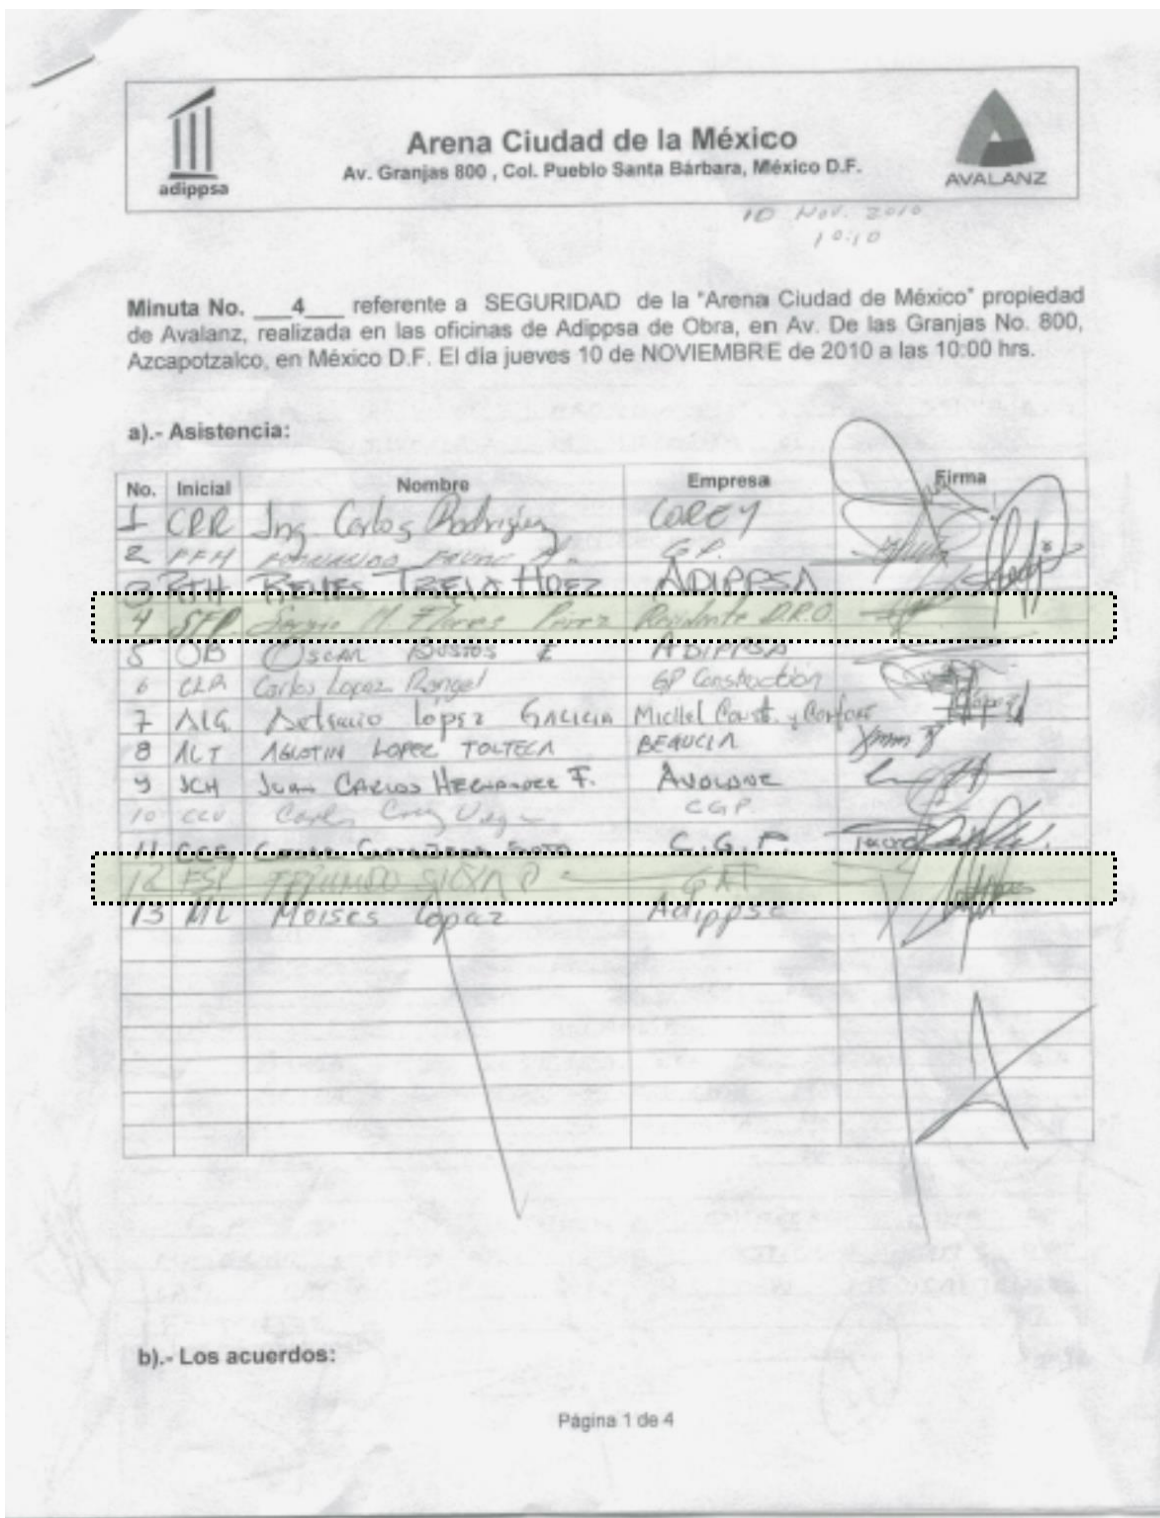 adippsa
Arena Ciudad de la México
Av. Granjas 800 , Col. Pueblo Santa Bárbara, México D.F.
AVALANZ
10 Nov. 2010
10:10
Minuta No. ___4___ referente a SEGURIDAD de la "Arena Ciudad de México" propiedad
de Avalanz, realizada en las oficinas de Adippsa de Obra, en Av. De las Granjas No. 800,
Azcapotzalco, en México D.F. El día jueves 10 de NOVIEMBRE de 2010 a las 10:00 hrs.
a).- Asistencia:
No. Inicial Nombre Empresa Firma
1 CRR Ing Carlos Rodriguez COREY
2 FFM G.P.
3 RTH REYES TREJO HDEZ ADIPPSA
4 SFP Sergio M. Flores Pérez Residente D.R.O.
5 OB OSCAR BUSTOS E ADIPPSA
6 CLR Carlos Lopez Rangel GP Construcción
7 ALG López GALICIA Const. y Confort
8 ALT AGUSTIN LOPEZ TOLTECA
9 JCH JUAN CARLOS HERNANDEZ F.
10 CCV Carlos Cruz CGP
11 CCS C.G.P.
12 FSP SILVA P GAT
13 ML Moises Lopez Adippsa
b).- Los acuerdos:
Página 1 de 4